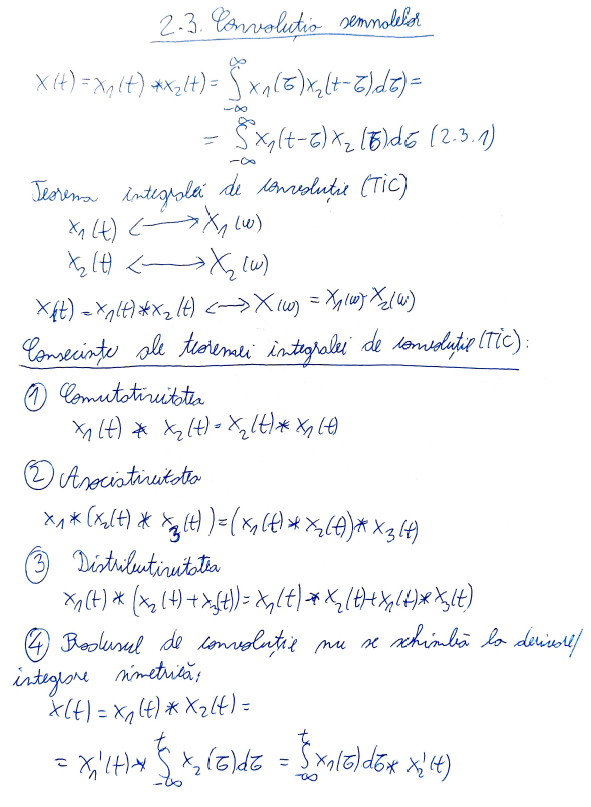 2.3. Convoluția semnalelor
x(t) = x₁(t) * x₂(t) = ∫_{-∞}^{∞} x₁(τ) x₂(t-τ) dτ) =
= ∫_{-∞}^{∞} x₁(t-τ) x₂(τ) dτ (2.3.1)
Teorema integralei de convoluție (TIC)
x₁(t) <——> X₁(ω)
x₂(t) <——> X₂(ω)
x(t) = x₁(t) * x₂(t) <—> X(ω) = X₁(ω)·X₂(ω)
Consecințe ale teoremei integralei de convoluție (TIC):
① Comutativitatea
x₁(t) * x₂(t) = x₂(t) * x₁(t)
② Asociativitatea
x₁ * (x₂(t) * x₃(t)) = (x₁(t) * x₂(t)) * x₃(t)
③ Distributivitatea
x₁(t) * (x₂(t) + x₃(t)) = x₁(t) * x₂(t) + x₁(t) * x₃(t)
④ Produsul de convoluție nu se schimbă la derivare/
integrare simetrică;
x(t) = x₁(t) * x₂(t) =
= x₁'(t) * ∫_{-∞}^{t} x₂(τ) dτ = ∫_{-∞}^{t} x₁(τ) dτ * x₂'(t)